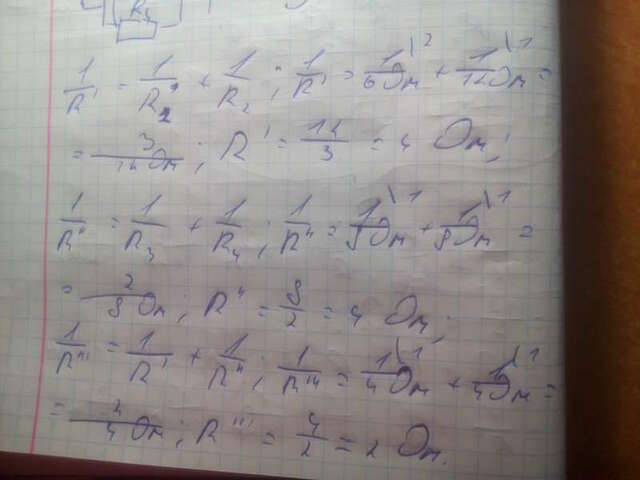 R₄
1/R' = 1/R₂ + 1/R₂ ; 1/R' = 1\2/6 Ом + 1\1/12 Ом =
= 3/12 Ом ; R' = 12/3 = 4 Ом;
1/R" = 1/R₃ + 1/R₄ ; 1/R" = 1\1/8 Ом + 1\1/8 Ом =
= 2/8 Ом ; R" = 8/2 = 4 Ом;
1/R''' = 1/R' + 1/R" ; 1/R''' = 1\1/4 Ом + 1\1/4 Ом =
= 2/4 Ом ; R''' = 4/2 = 2 Ом.